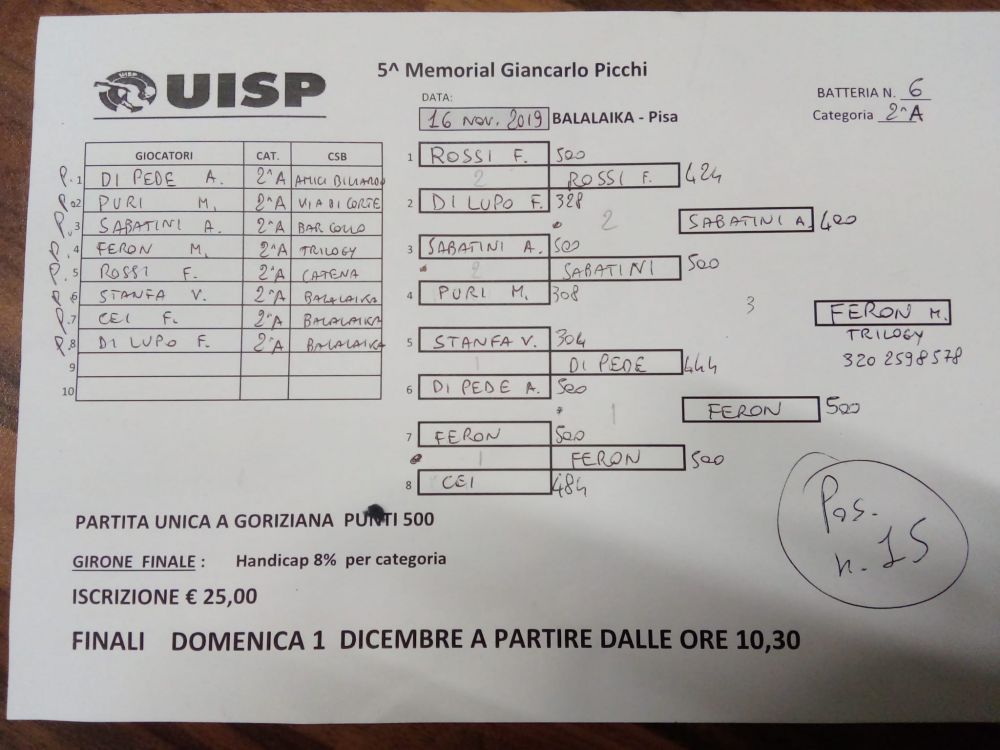 UISP
5^ Memorial Giancarlo Picchi
BATTERIA N. 6
Categoria 2^A
DATA:
16 NOV. 2019 BALALAIKA - Pisa
GIOCATORI CAT. CSB
P. 1 DI PEDE A. 2^A AMICI BILIARDO
P. 2 PURI M. 2^A VIA DI CORTE
P. 3 SABATINI A. 2^A BAR COLLO
P. 4 FERON M. 2^A TRILOGY
P. 5 ROSSI F. 2^A CATENA
P. 6 STANFA V. 2^A BALALAIKA
P. 7 CEI F. 2^A BALALAIKA
P. 8 DI LUPO F. 2^A BALALAIKA
9
10
1 ROSSI F. 500
2 ROSSI F. 424
2 DI LUPO F. 328
2 SABATINI A. 420
3 SABATINI A. 500
2 SABATINI 500
4 PURI M. 308
3 FERON M.
TRILOGY
320 2598578
5 STANFA V. 304
1 DI PEDE 444
6 DI PEDE A. 500
1 FERON 500
7 FERON 500
1 FERON 500
8 CEI 484
PARTITA UNICA A GORIZIANA PUNTI 500
GIRONE FINALE : Handicap 8% per categoria
ISCRIZIONE € 25,00
FINALI DOMENICA 1 DICEMBRE A PARTIRE DALLE ORE 10,30
Pos.
n. 15